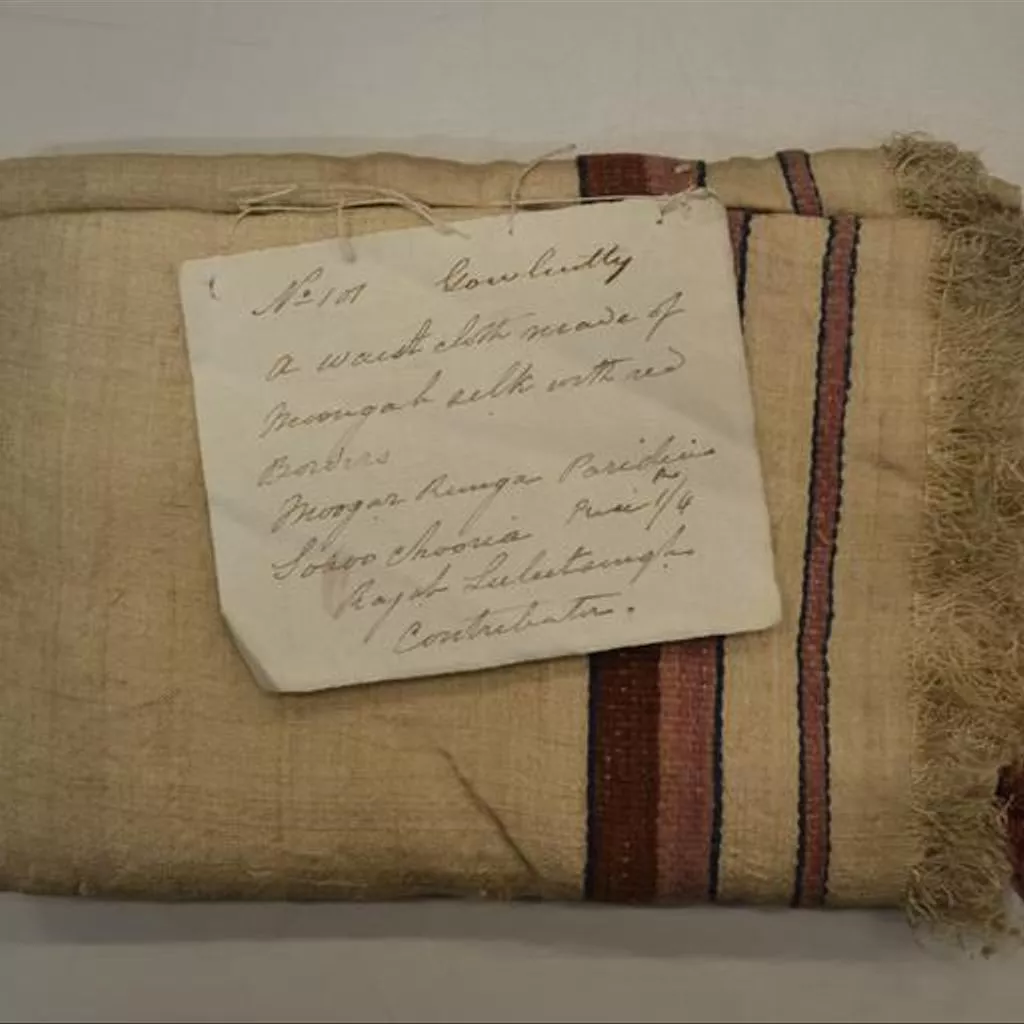 No 101 Gowhutty
A waist cloth made of
Moongah silk with red
Borders
Moogar Runga Paridia
Sowoo Chooria Price 1/4
Rajah
Contributor.